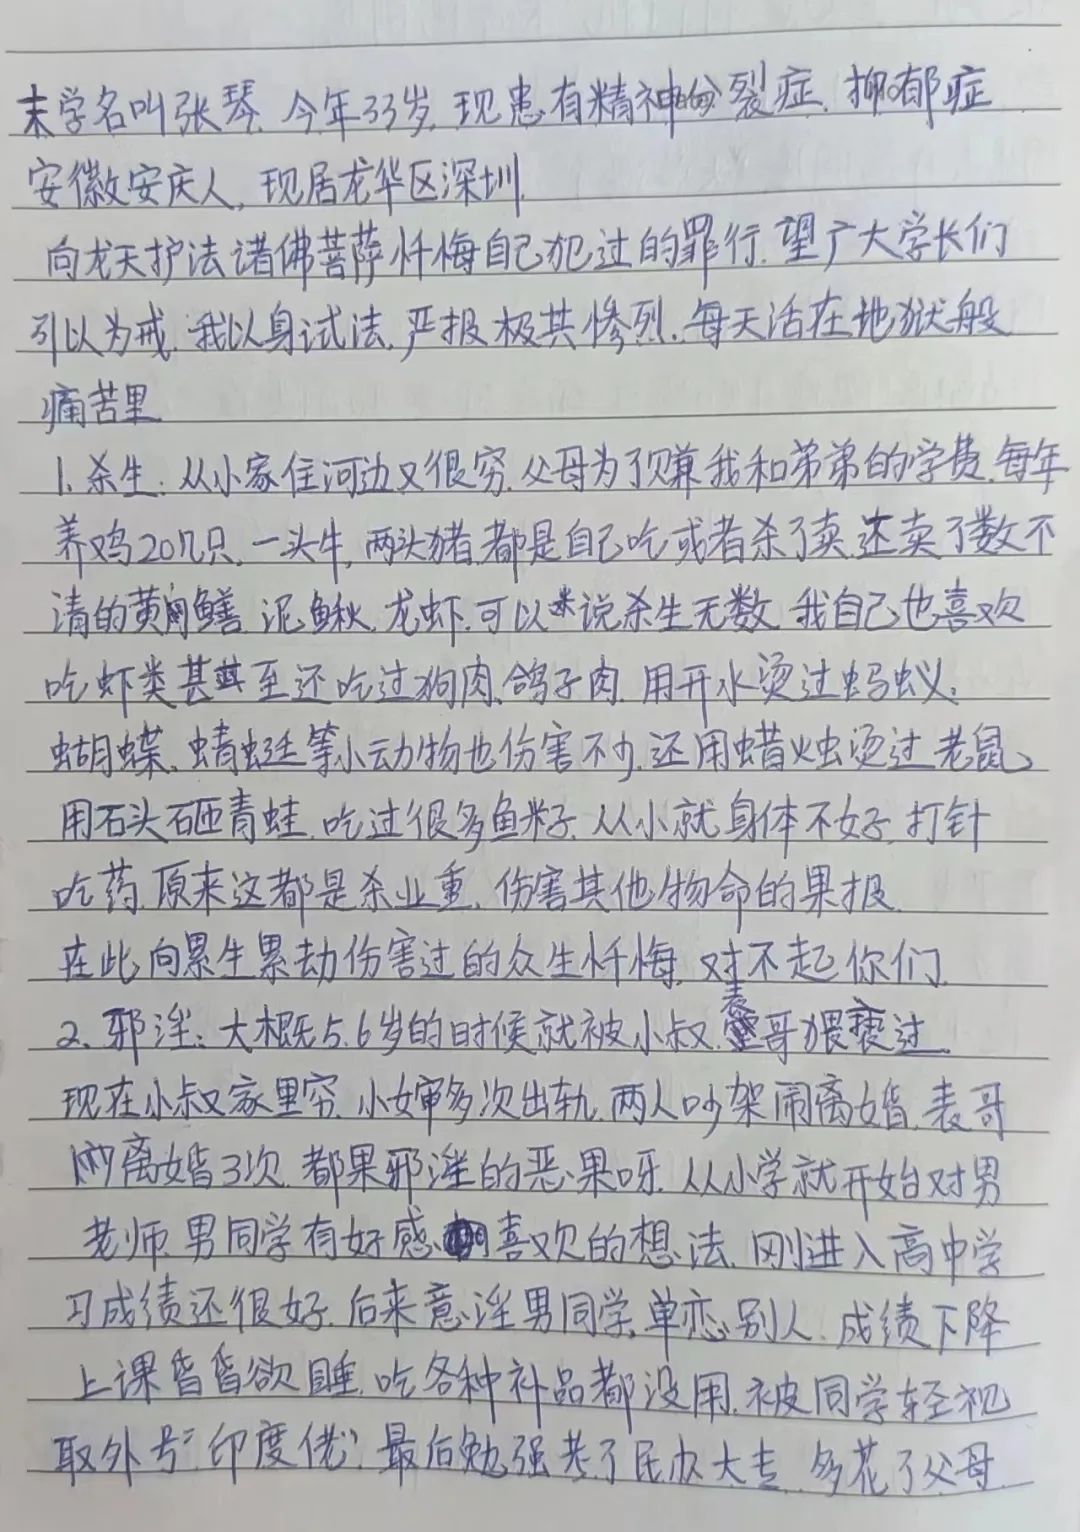 末学名叫张琴.今年33岁,现患有精神分裂症.抑郁症
安徽安庆人,现居龙华区深圳.
向龙天护法诸佛菩萨忏悔自己犯过的罪行.望广大学长们
引以为戒.我以身试法.严报极其惨烈.每天活在地狱般
痛苦里.
1.杀生:从小家住河边又很穷.父母为了赚我和弟弟的学费.每年
养鸡20几只,一头牛,两头猪.都是自己吃或者杀了卖.还卖了数不
清的黄鳝.泥鳅.龙虾.可以说杀生无数.我自己也喜欢
吃虾类甚至还吃过狗肉、鸽子肉.用开水烫过蚂蚁.
蝴蝶、蜻蜓等小动物也伤害不少.还用蜡烛烫过老鼠、
用石头砸青蛙.吃过很多鱼籽.从小就身体不好.打针
吃药.原来这都是杀业重.伤害其他物命的果报.
在此向累生累劫伤害过的众生忏悔.对不起你们.
2、邪淫:大概5.6岁的时候就被小叔.表哥猥亵过.
现在小叔家里穷.小婶多次出轨.两人吵架闹离婚.表哥
离婚3次.都果邪淫的恶果呀.从小学就开始对男
老师.男同学有好感.喜欢的想法.刚进入高中学
习成绩还很好.后来意淫男同学,单恋别人.成绩下降
上课昏昏欲睡.吃各种补品都没用.被同学轻视
取外号"印度佬".最后勉强考了民办大专.多花了父母